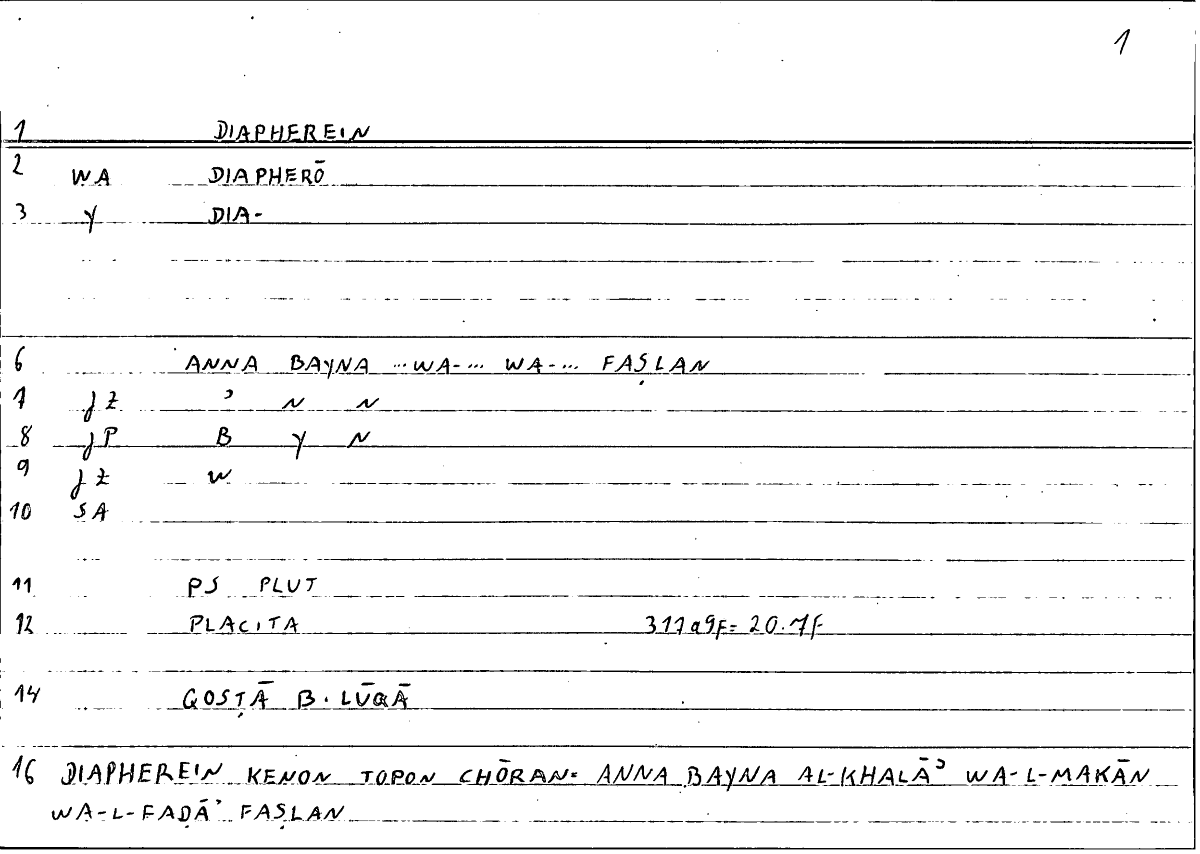 1
1 DIAPHEREIN
2 WA DIAPHERŌ
3 Y DIA-
6 ANNA BAYNA ...WA-... WA-... FAṢLAN
7 JZ ʾ N N
8 JP B Y N
9 JZ W
10 SA
11 PS PLUT
12 PLACITA 317a9F= 20.7f
14 QOSṬĀ B. LŪQĀ
16 DIAPHEREIN KENON TOPON CHŌRAN= ANNA BAYNA AL-KHALĀʾ WA-L-MAKĀN
WA-L-FAḌĀʾ FAṢLAN